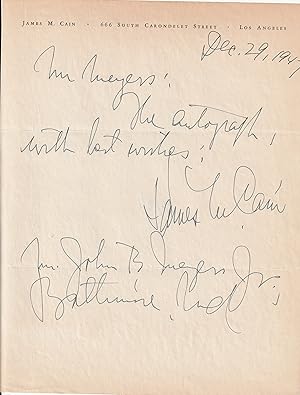 JAMES M. CAIN · 666 SOUTH CARONDELET STREET · LOS ANGELES
Dec. 29, 194
Mr Meyers:
The autograph,
with best wishes:
James M. Cain
Mr. John B Meyers Jr;
Baltimore, Md